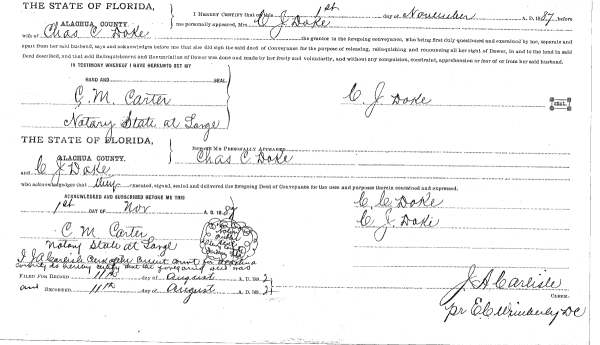 THE STATE OF FLORIDA,
ALACHUA COUNTY.
I HEREBY CERTIFY that on this 1st day of November A. D. 1887 before
me personally appeared, Mrs. C J Doke
wife of Chas C Doke the grantor in the foregoing conveyance, who being first duly questioned and examined by me, separate and
apart from her said husband, says and acknowledges before me that she did sign the said deed of Conveyance for the purpose of releasing, relinquishing and renouncing all her right of Dower, in and to the land in said
Deed described, and that said Relinquishment and Renunciation of Dower was done and made by her freely and voluntarily, and without any compulsion, constraint, apprehension or fear of or from her said husband.
IN TESTIMONY WHEREOF I HAVE HEREUNTO SET MY
HAND AND SEAL
C. M. Carter
Notary State at Large
C J Doke
SEAL
THE STATE OF FLORIDA,
ALACHUA COUNTY.
BEFORE ME PERSONALLY APPEARED
Chas C Doke
and C J Doke
who acknowledges that they executed, signed, sealed and delivered the foregoing Deed of Conveyance for the uses and purposes therein contained and expressed.
ACKNOWLEDGED AND SUBSCRIBED BEFORE ME THIS
1st DAY OF Nov A. D. 1887
C. M. Carter
Notary State at Large
C C Doke
C J Doke
I J A Carlisle Clerk of the Circuit Court for Alachua
County do hereby certify that the foregoing deed was
FILED FOR RECORD 11th day of August A. D. 189
and RECORDED 11th day of August A. D. 189
J A Carlisle
CLERK.
pr E C Wimberly DC